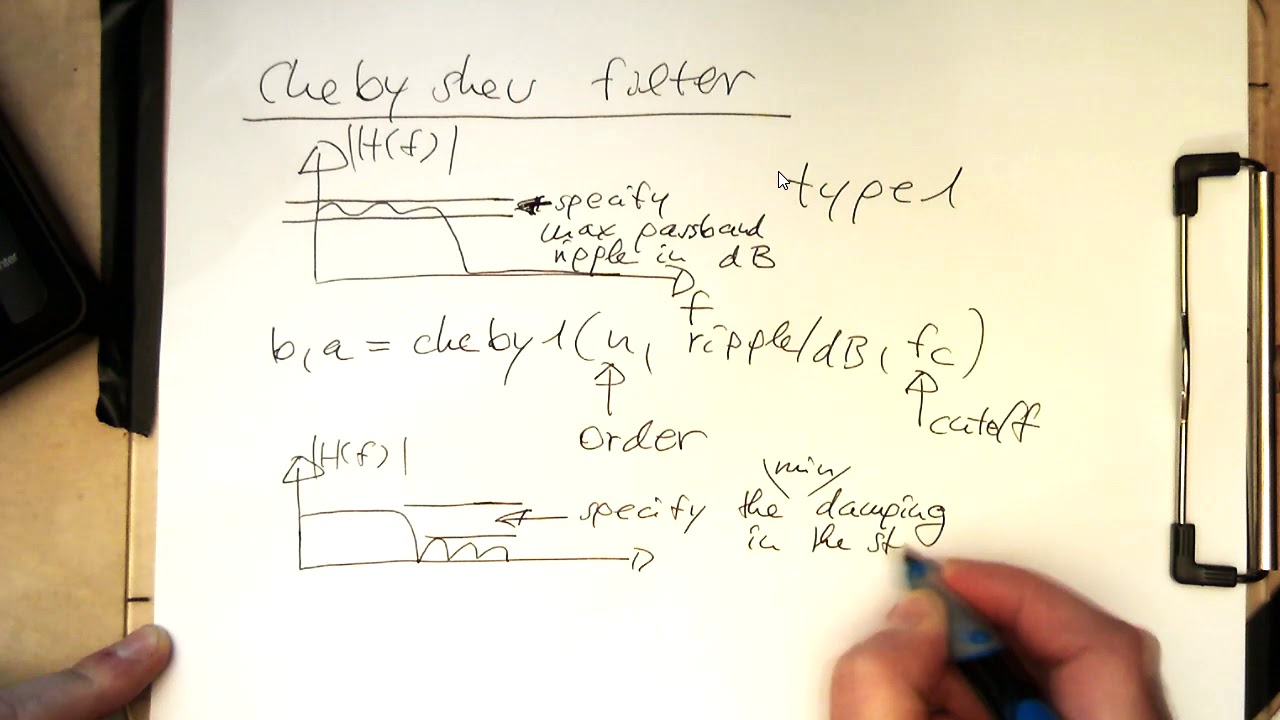 Chebyshev filter
|H(f)|
type 1
specify
max passband
ripple in dB
f
b, a = cheby1(n, ripple/dB, fc)
order
cutoff
|H(f)|
min
specify the damping
in the st